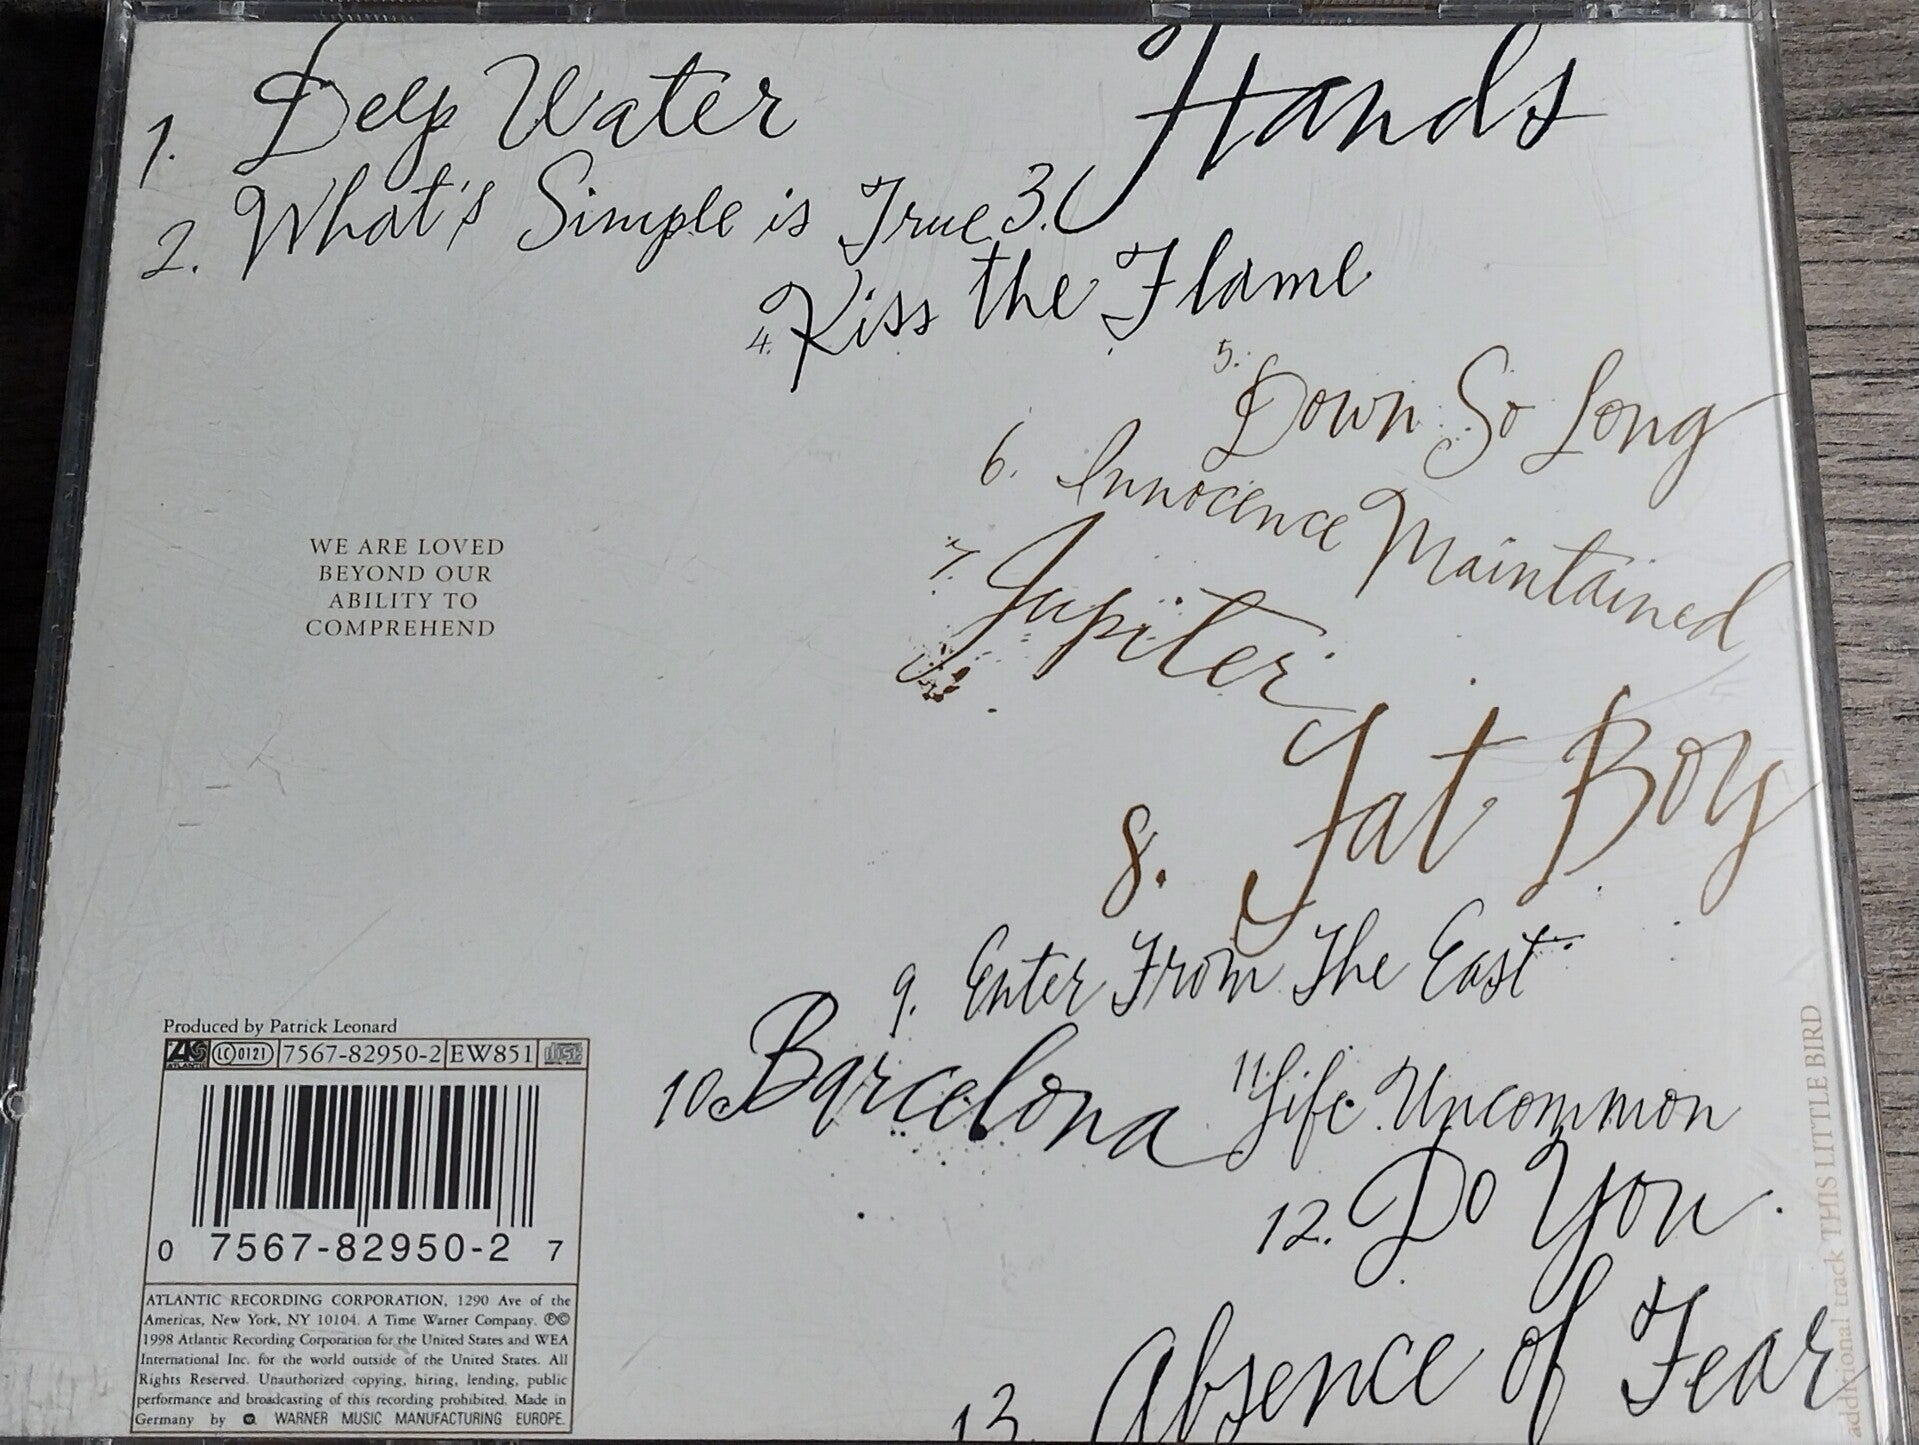 1. Deep Water
2. What's Simple is True
3. Hands
4. Kiss the Flame
5. Down So Long
6. Innocence Maintained
7. Jupiter
8. Fat Boy
9. Enter From The East
10. Barcelona
11. Life Uncommon
12. Do You
13. Absence of Fear
additional track THIS LITTLE BIRD
WE ARE LOVED
BEYOND OUR
ABILITY TO
COMPREHEND
Produced by Patrick Leonard
ATLANTIC LC 0121 7567-82950-2 EW851 disc
0 7567-82950-2 7
ATLANTIC RECORDING CORPORATION, 1290 Ave of the
Americas, New York, NY 10104. A Time Warner Company. ℗©
1998 Atlantic Recording Corporation for the United States and WEA
International Inc. for the world outside of the United States. All
Rights Reserved. Unauthorized copying, hiring, lending, public
performance and broadcasting of this recording prohibited. Made in
Germany by WARNER MUSIC MANUFACTURING EUROPE.